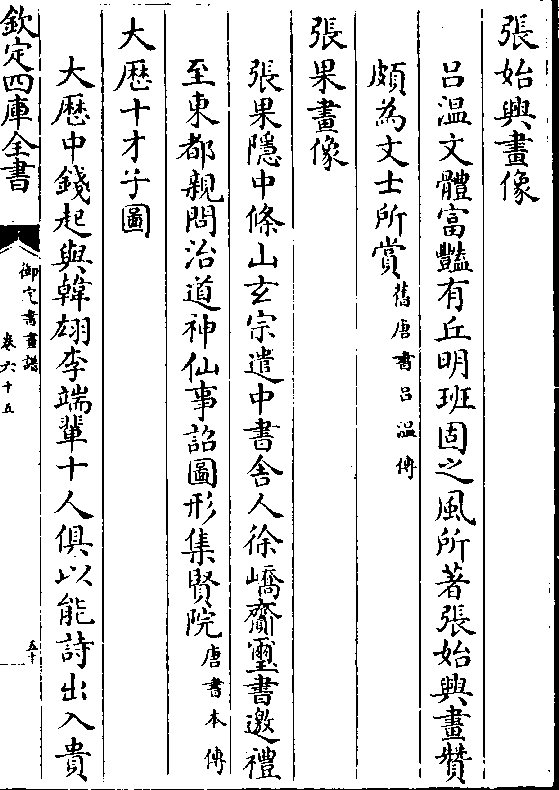 張始興畫像
呂溫文體富豔有丘明班固之風所著張始興畫贊
頗為文士所賞舊唐書呂溫傳
張果畫像
張果隱中條山玄宗遣中書舍人徐嶠齎璽書邀禮
至東都親問治道神仙事詔圖形集賢院唐書本傳
大厯十才子圖
大厯中錢起與韓翃李端輩十人俱以能詩出入貴
欽定四庫全書
御定書畫譜
卷六十五
五十